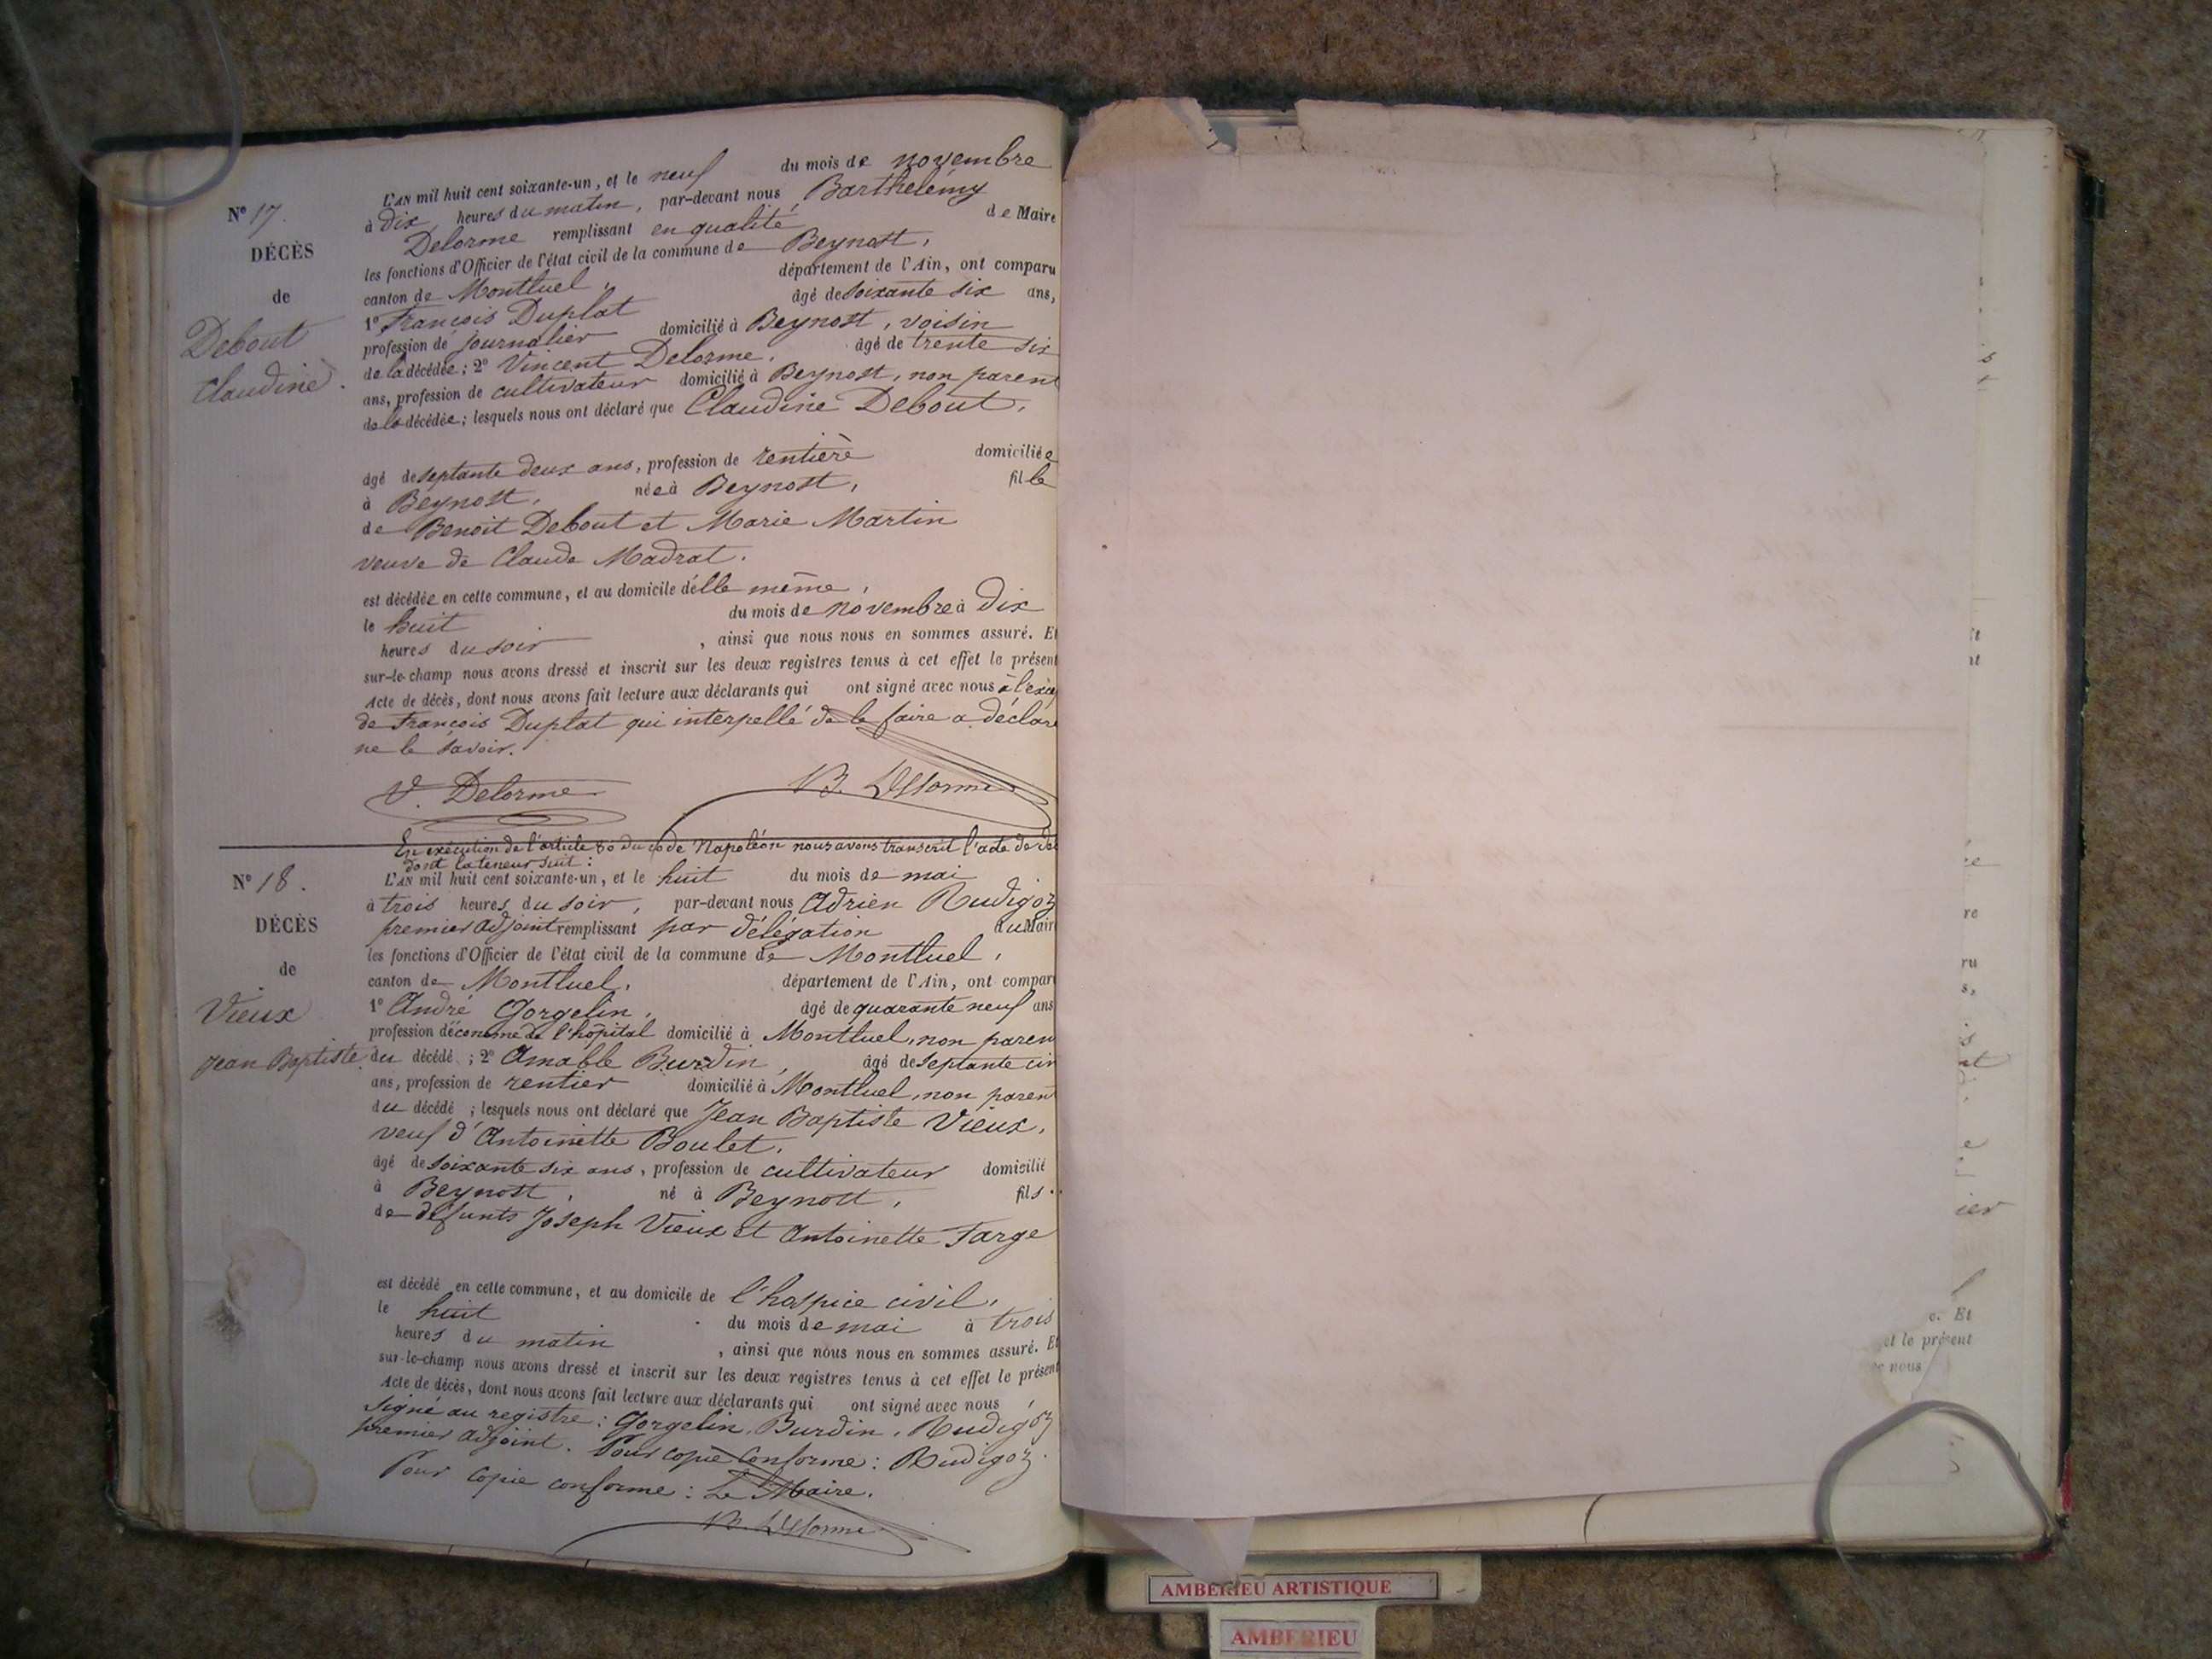 N° 17.
DÉCÈS
de
Debout
Claudine.
L'AN mil huit cent soixante-un, et le neuf du mois de novembre
à dix heures du matin, par-devant nous Barthélemy
Delorme remplissant en qualité de Maire
les fonctions d'Officier de l'état civil de la commune de Beynost,
canton de Montluel, département de l'Ain, ont comparu
1° François Duplat âgé de soixante six ans,
profession de journalier domicilié à Beynost, voisin
de la décédée ; 2° Vincent Delorme, âgé de trente six
ans, profession de cultivateur domicilié à Beynost, non parent
de la décédée ; lesquels nous ont déclaré que Claudine Debout,
âgé de septante deux ans, profession de rentière domiciliée
à Beynost, née à Beynost, fille
de Benoit Debout et Marie Martin
veuve de Claude Madrat.
est décédée en cette commune, et au domicile d'elle même,
le huit du mois de novembre à dix
heures du soir , ainsi que nous nous en sommes assuré. Et
sur-le-champ nous avons dressé et inscrit sur les deux registres tenus à cet effet le présent
Acte de décès, dont nous avons fait lecture aux déclarants qui ont signé avec nous à
de François Duplat qui interpellé de le faire a déclaré
ne le savoir.
V. Delorme B. Delorme
En exécution de l'article 80 du code Napoléon nous avons transcrit l'acte de
dont la teneur suit :
N° 18.
DÉCÈS
de
Vieux
Jean Baptiste.
L'AN mil huit cent soixante-un, et le huit du mois de mai
à trois heures du soir, par-devant nous Adrien Rudigoz
premier adjoint remplissant par délégation du Mair
les fonctions d'Officier de l'état civil de la commune de Montluel,
canton de Montluel, département de l'Ain, ont compar
1° André Gorgelin, âgé de quarante neuf ans
profession d'économe de l'hôpital domicilié à Montluel, non paren
du décédé ; 2° Amable Burdin, âgé de septante cin
ans, profession de rentier domicilié à Montluel, non parent
du décédé ; lesquels nous ont déclaré que Jean Baptiste Vieux,
veuf d'Antoinette Boulet,
âgé de soixante six ans, profession de cultivateur domicilié
à Beynost, né à Beynost, fils
de défunts Joseph Vieux et Antoinette Farge
est décédé en cette commune, et au domicile de l'hospice civil,
le huit du mois de mai à trois
heures du matin , ainsi que nous nous en sommes assuré. Et
sur-le-champ nous avons dressé et inscrit sur les deux registres tenus à cet effet le présent
Acte de décès, dont nous avons fait lecture aux déclarants qui ont signé avec nous
signé au registre : Gorgelin, Burdin, Rudigoz
premier adjoint. Pour copie conforme : Rudigoz.
Pour copie conforme : Le Maire.
B. Delorme
re
ru
s,
ier
e. Et
et le présent
nous
AMBERIEU ARTISTIQUE
AMBERIEU